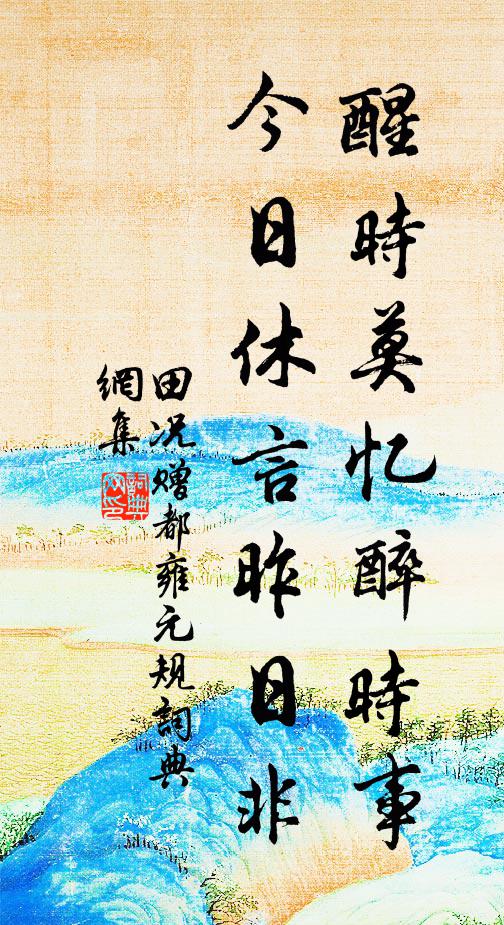 醒時莫忆醉時事
今日休言昨日非
田况赠都雍元规詞典
網集
詞典